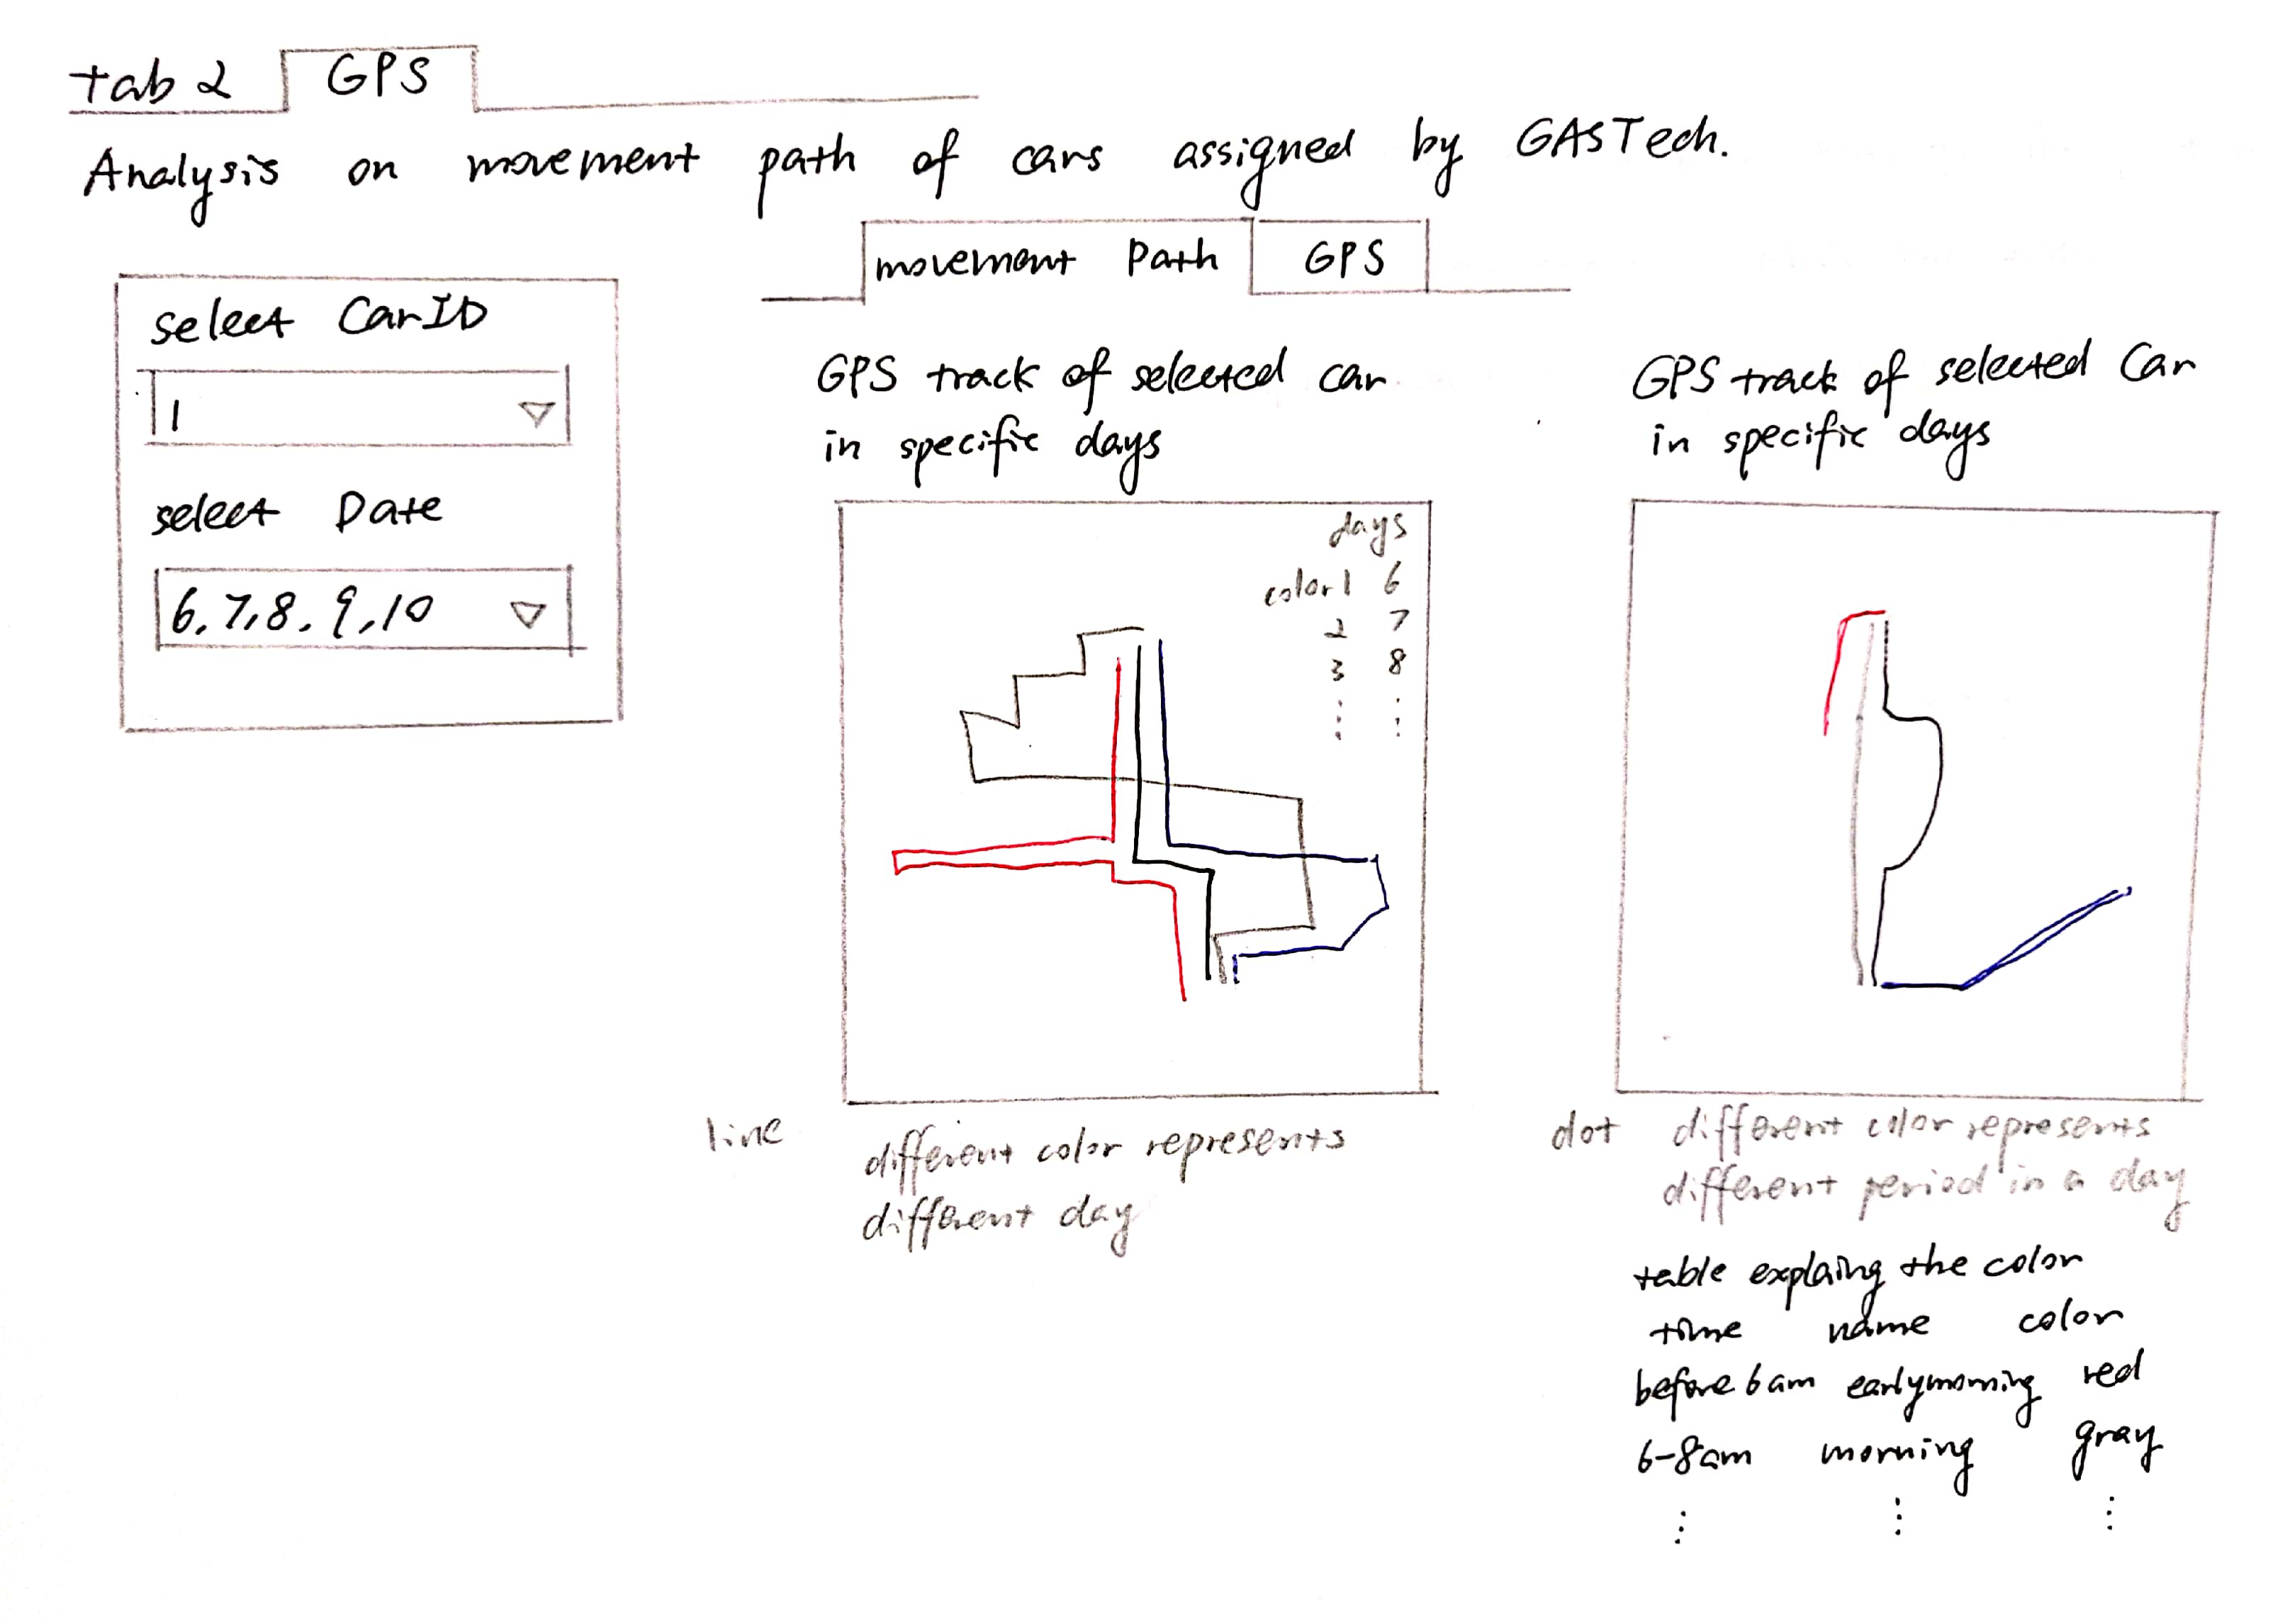 tab 2 GPS
Analysis on movement path of cars assigned by GASTech.
movement Path GPS
select CarID
1
select Date
6, 7, 8, 9, 10
GPS track of selected car
in specific days
days
color 1 6
2 7
3 8
⋮ ⋮
line
different color represents
different day
GPS track of selected Car
in specific days
dot different color represents
different period in a day
table explaing the color
time name color
before 6am earlymorning red
6-8am morning gray
⋮ ⋮ ⋮